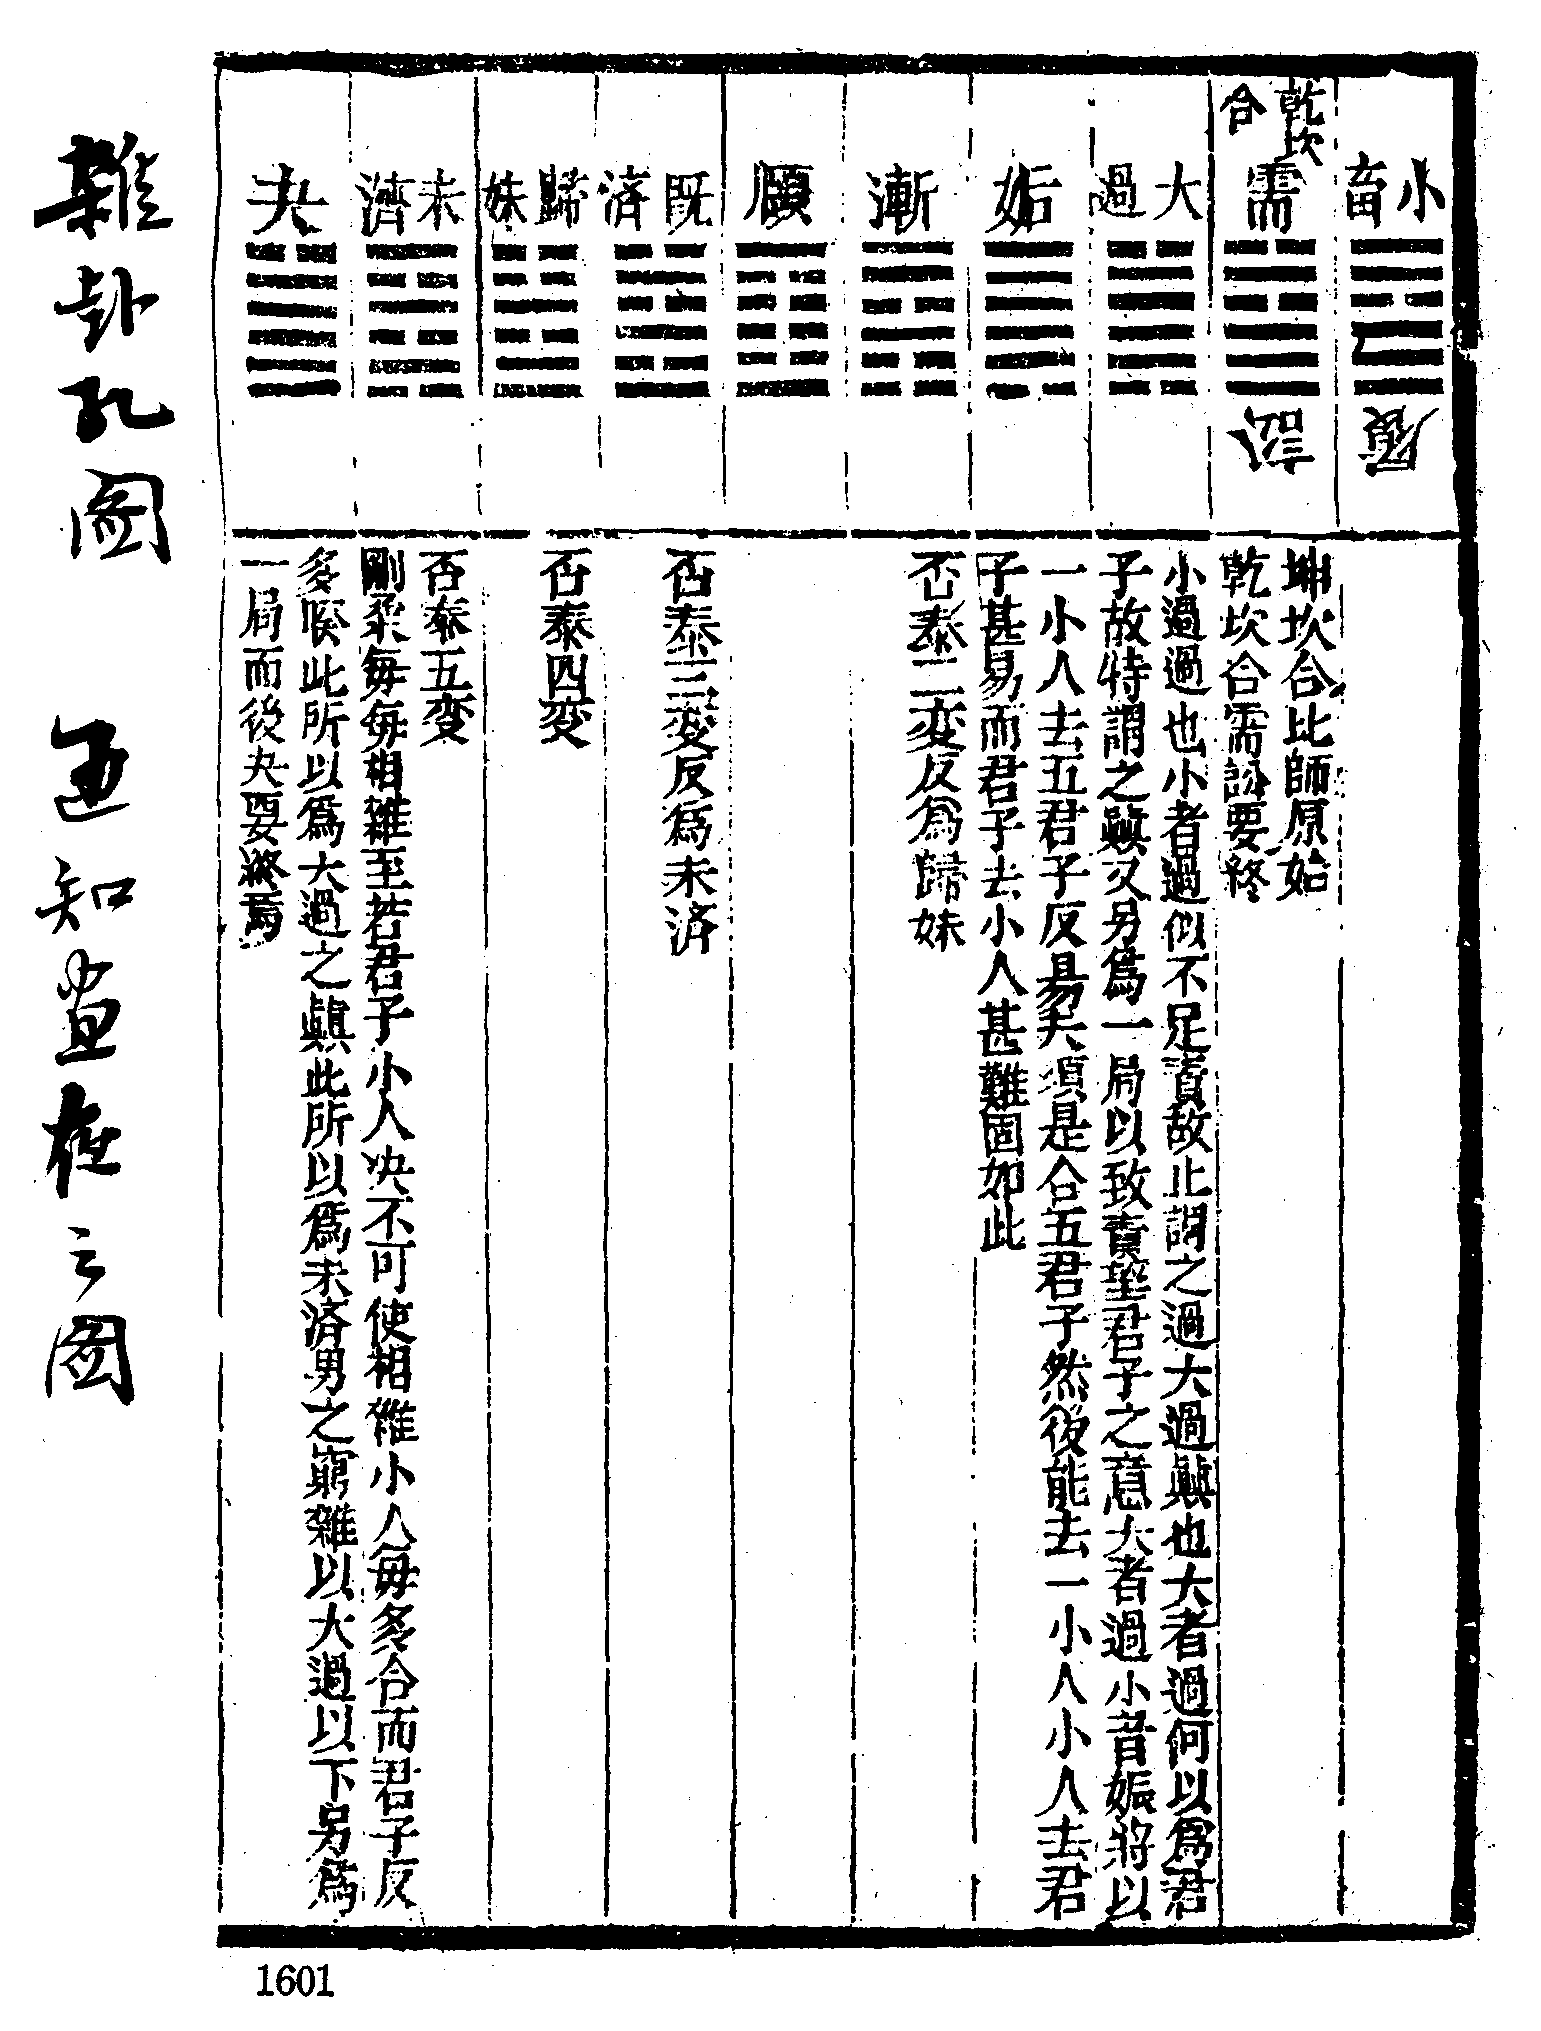 小畜
履
乾坎合
需
訟
大過
姤
漸
頤
既済
歸妹
未濟
夬
坤坎合比師原始
乾坎合需訟要終
小過過也小者過似不足責故止謂之過大過顛也大者過何以爲君
子故特謂之顛又另爲一局以致責望君子之意大者過小者娠將以
一小人去五君子反易矣須是合五君子然後能去一小人小人去君
子甚易而君子去小人甚難固如此
否泰二変反爲歸妹
否泰三変反爲未済
否泰四変
否泰五変
剛柔每每相雜至若君子小人决不可使相雜小人每多合而君子反
多睽此所以爲大過之顛此所以爲未済男之窮雜以大過以下另爲
一局而後夬要終焉
雜卦孔圖
知畫在之圖
1601